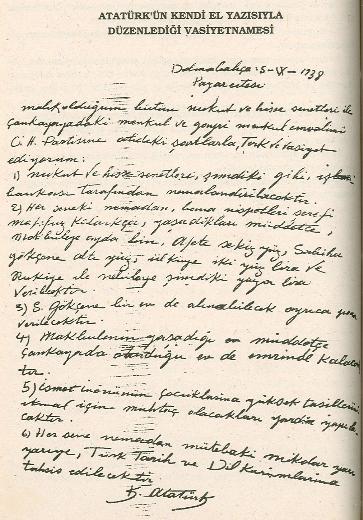 ATATÜRK'ÜN KENDİ EL YAZISIYLA
DÜZENLEDİĞİ VASİYETNAMESİ
Dolmabahçe 5-IX-1938
Pazartesi
malik olduğum bütün nukut ve hisse senetleri ile
Çankayadaki menkul ve gayri menkul emvalimi
C.H. Partisine atideki şartlarla, terk ve vasiyet
ediyorum:
1) nukut ve hisse senetleri, şimdiki gibi, iş
bankası tarafından nemalandırılacaktır.
2) Her seneki nemadan, bana nispetleri şerefi
mahfuz kaldıkça, yaşadıkları müddetçe,
Makbuleye ayda bin, Afete sekiz yüz, Sabiha
Gökçene altı yüz, Ülküye iki yüz lira ve
Rukiye ile Nebileye şimdiki yüzer lira
verilecektir.
3) S. Gökçene bir ev de alınabilecek ayrıca para
verilecektir.
4) Makbulenin yaşadığı müddetçe
Çankayada oturduğu ev de emrinde kalacak
tır.
5) İsmet İnönünün çocuklarına yüksek tahsillerini
ikmal için muhtaç olacakları yardım yapıla
caktır.
6) Her sene nemadan mütebaki miktar yarı
yarıya, Türk Tarih ve Dil Kurumlarına
tahsis edilecektir
K. Atatürk